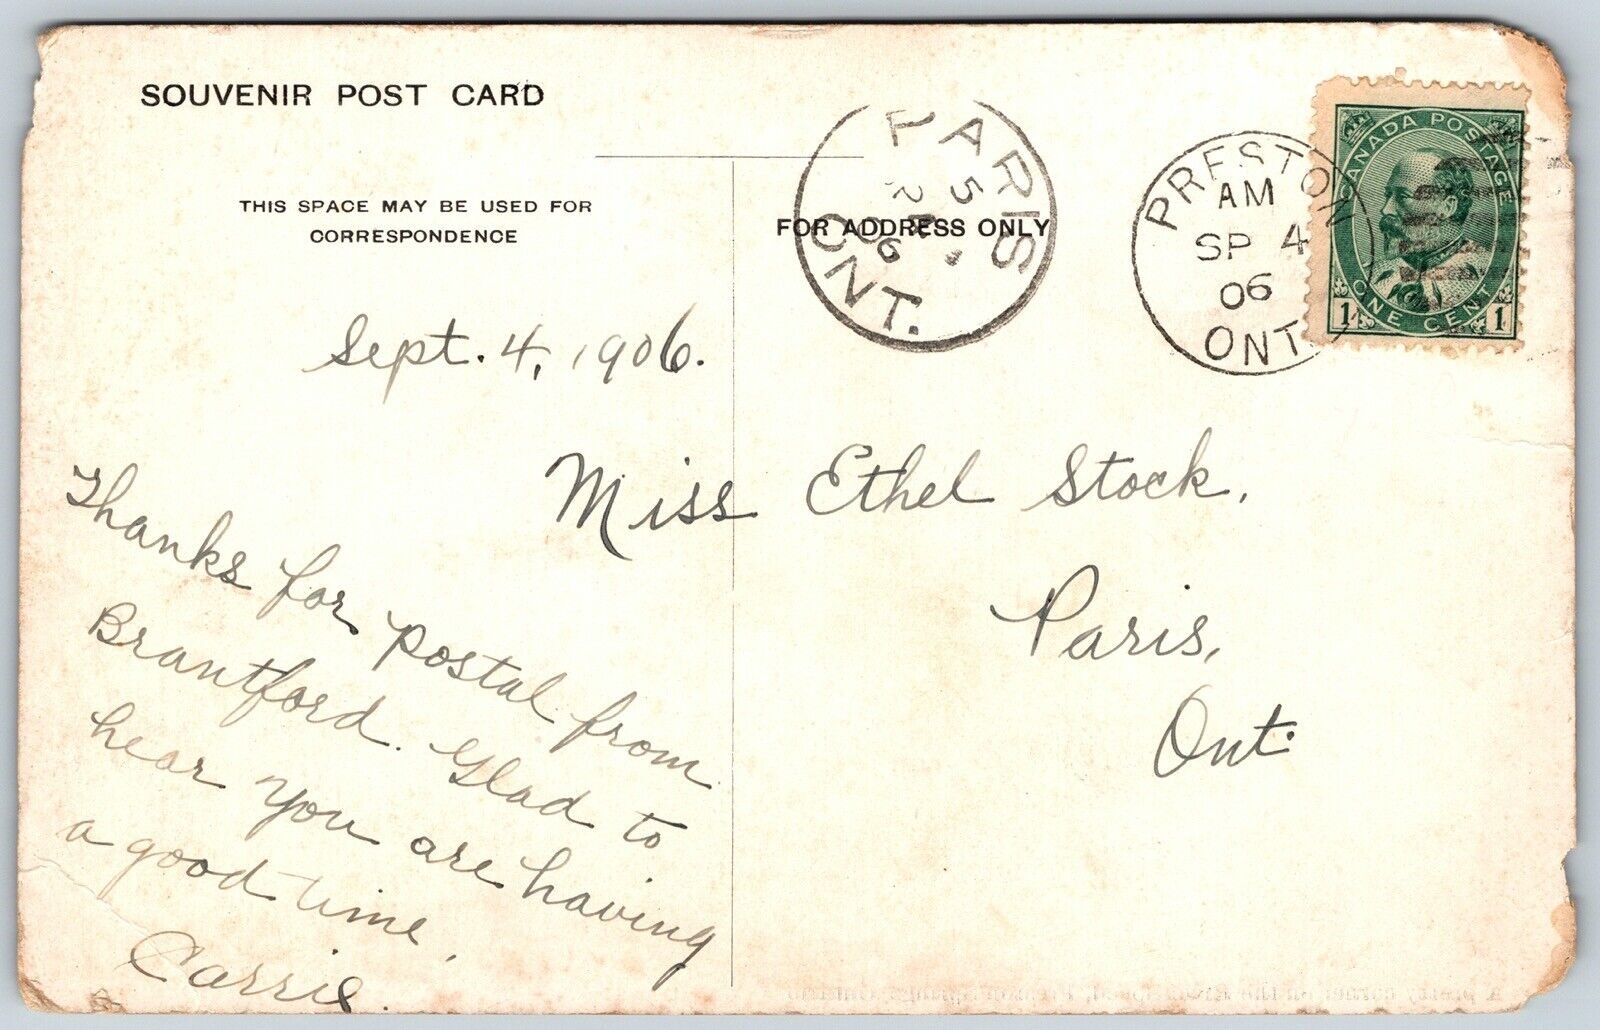 SOUVENIR POST CARD
THIS SPACE MAY BE USED FOR
CORRESPONDENCE
FOR ADDRESS ONLY
PARIS
5
06
ONT.
PRESTON
AM
SP 4
06
ONT
CANADA POSTAGE
1 ONE CENT 1
Sept. 4, 1906.
Thanks for postal from
Brantford. Glad to
hear you are having
a good time.
Carrie.
Miss Ethel Stock,
Paris,
Ont.